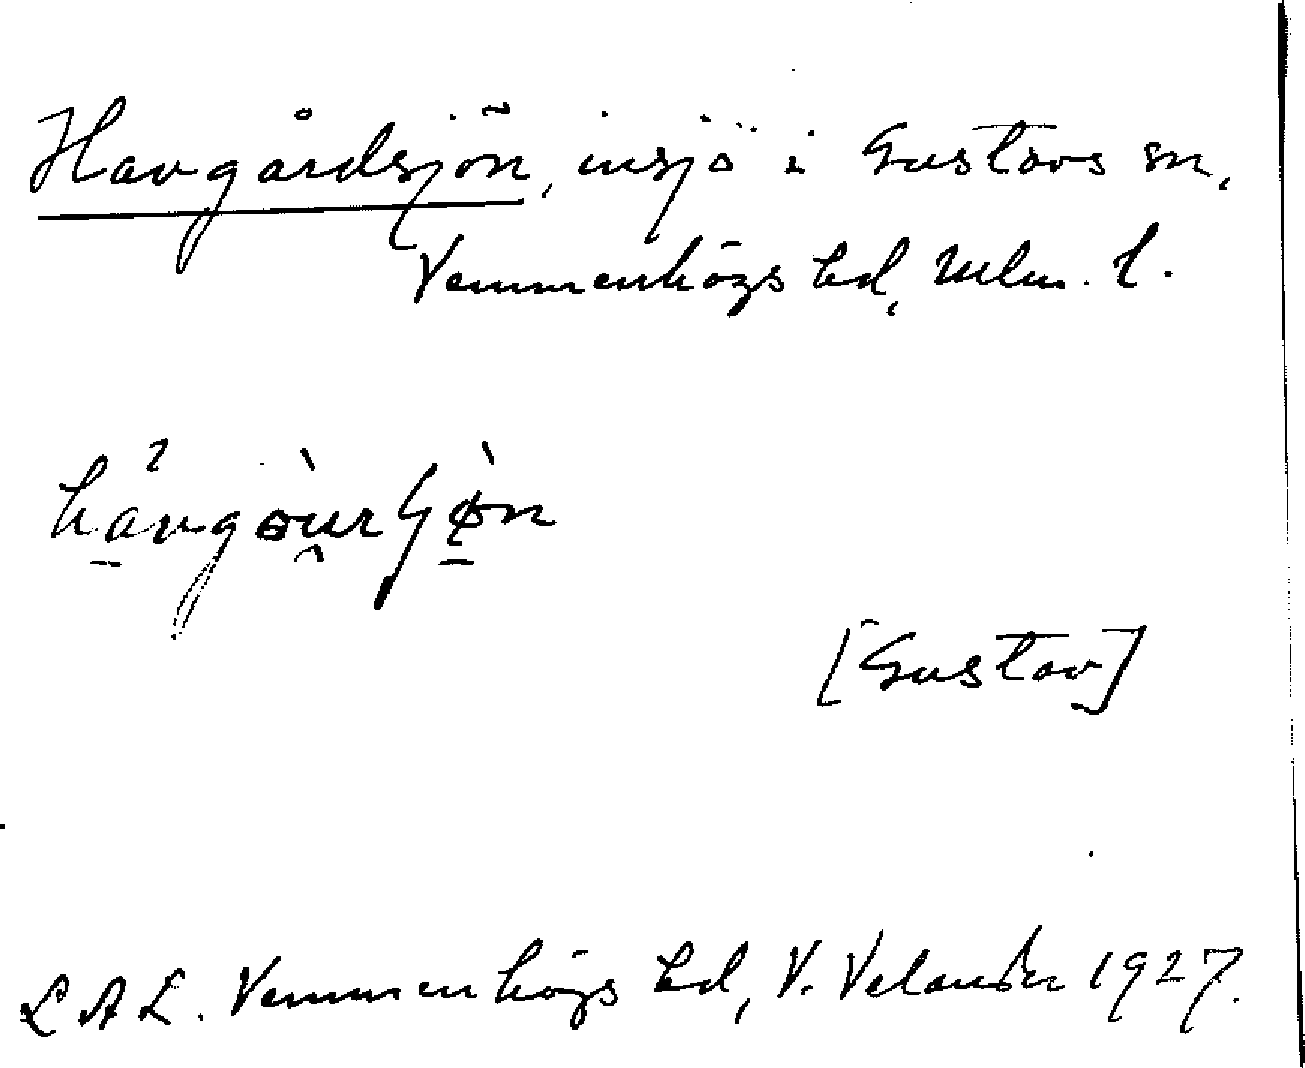 Havgårdsjön, insjö i Gustavs sn,
Vemmenhögs hd, Mlm. l.
[Gustav]
L A L. Vemmenhögs hd, V. Velander 1927.